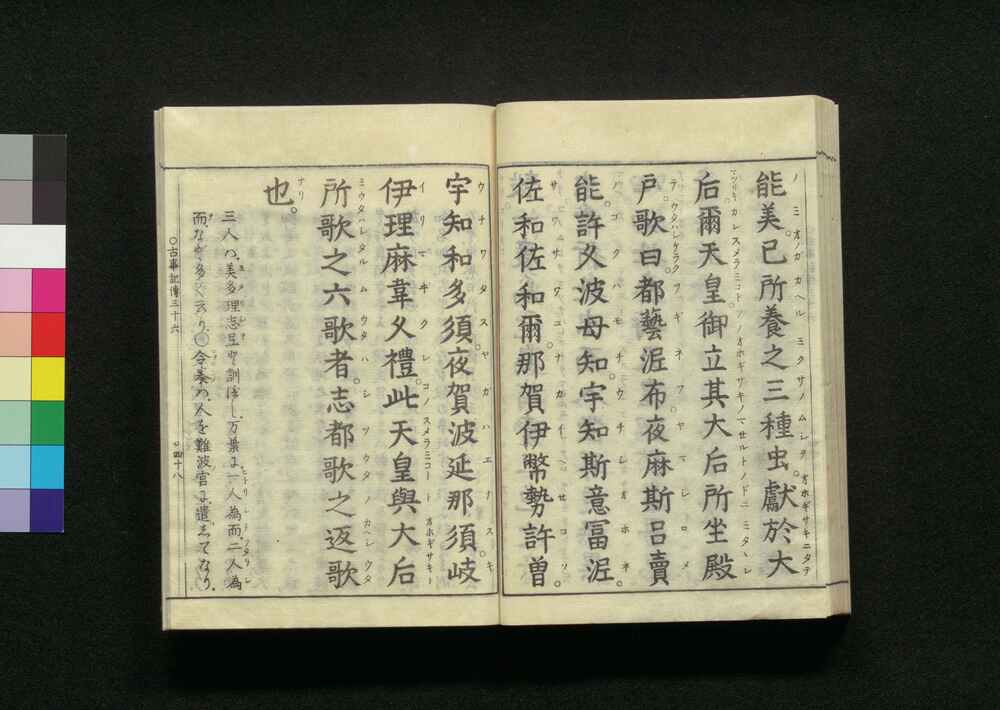 能美。己所養之三種虫。獻於大
后爾。天皇。御立其大后所坐殿
戸。歌曰。都藝泥布。夜麻斯呂賣
能。許久波母知。宇知斯意富泥。
佐和佐和爾。那賀伊幣勢許曽。
宇知和多須。夜賀波延那須。岐
伊理麻韋久禮。此天皇與大后
所歌之六歌者。志都歌之返歌
也。
三人ハ、美多理志弖ト訓べし、万葉に一人為而、二人為
而など多く云り、令奏ハ、人を難波宮に遣してなり、
○古事記傳三十六
○四十八